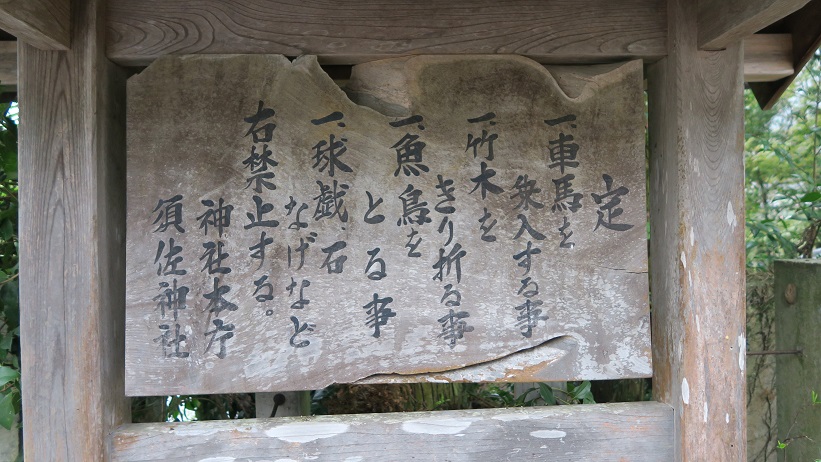 定
一、車馬を
乗入する事
一、竹木を
きり折る事
一、魚鳥を
とる事
一、球戯、石
なげなど
右禁止する。
神社本庁
須佐神社